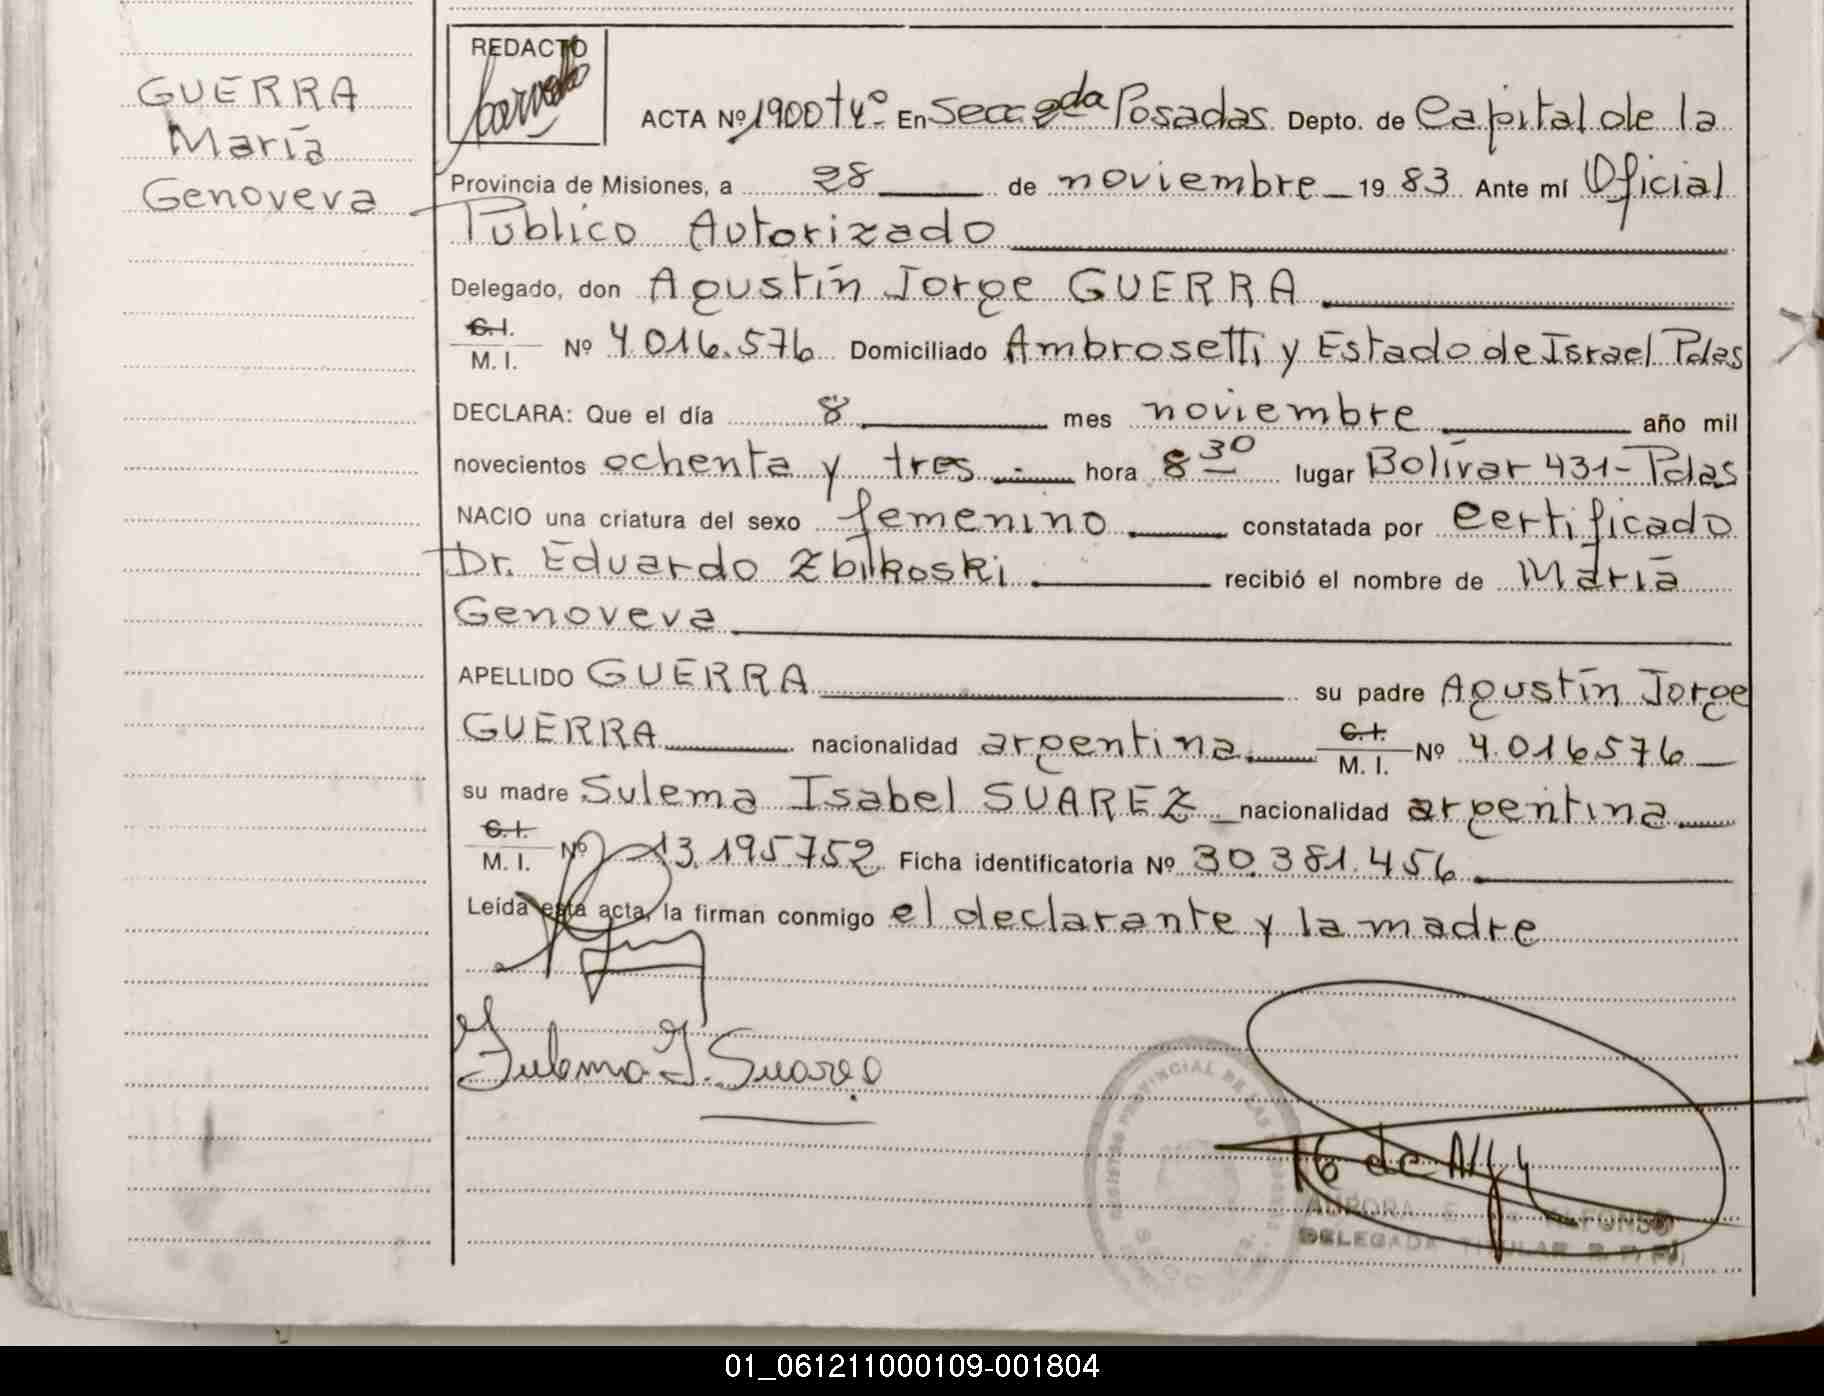 GUERRA
María
Genoveva
REDACTO
ACTA Nº 1900 tyº En Secc 2da Posadas Depto. de Capital de la
Provincia de Misiones, a 28 de noviembre 19 83 Ante mí Oficial
Público Autorizado
Delegado, don Agustín Jorge GUERRA
C.I.
M. I. Nº 4.016.576 Domiciliado Ambrosetti y Estado de Israel Pdas
DECLARA: Que el día 8 mes noviembre año mil
novecientos ochenta y tres hora 8 30 lugar Bolívar 431-Pdas
NACIO una criatura del sexo femenino constatada por certificado
Dr. Eduardo Zbilkoski recibió el nombre de María
Genoveva
APELLIDO GUERRA su padre Agustín Jorge
GUERRA nacionalidad argentina C.I.
M. I. Nº 4.016576
su madre Sulema Isabel SUAREZ nacionalidad argentina
C.I.
M. I. Nº 13.195752 Ficha identificatoria Nº 30.381.456
Leída esta acta, la firman conmigo el declarante y la madre
Sulema I. Suarez
PROVINCIAL DE LAS
AURORA E. DE ALFONSO
DELEGADA TITULAR R. P. P.
01_061211000109-001804